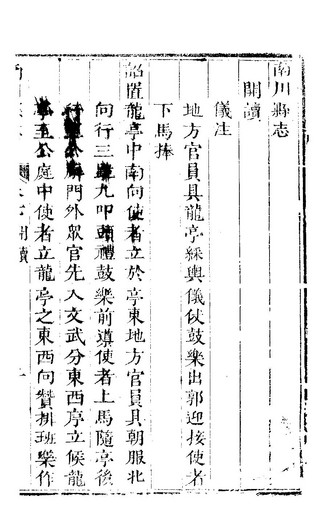 南川縣志
開讀
儀注
地方官員具龍亭綵輿儀仗鼓樂出郭迎接使者
下馬捧
詔置龍亭中南向使者立於亭東地方官員具朝服北
向行三九叩頭禮鼓樂前導使者上馬隨亭後
門外眾官先入文武分東西序立候龍
亭至公庭中使者立龍亭之東西向贊排班樂作
開讀